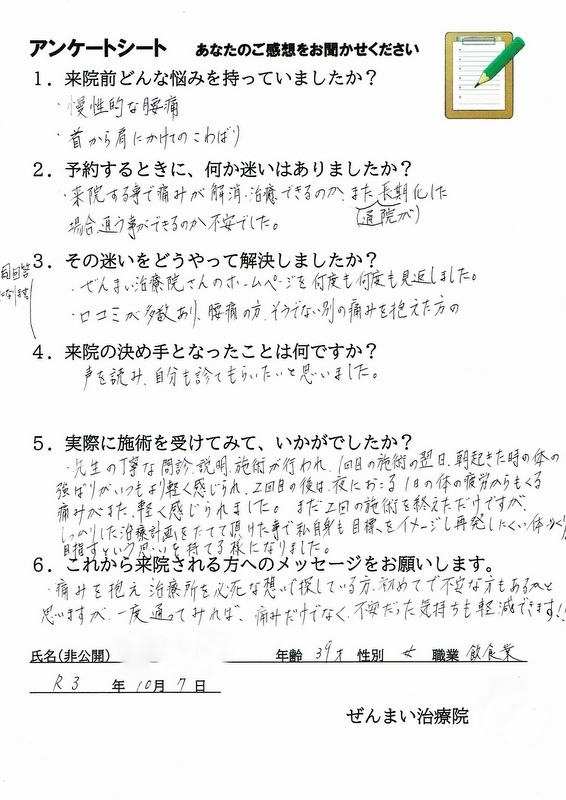 アンケートシート　あなたのご感想をお聞かせください
1．来院前どんな悩みを持っていましたか？
・慢性的な腰痛
・首から肩にかけてのこわばり
2．予約するときに、何か迷いはありましたか？
・来院する事で痛みが解消・治癒できるのか、また長期化した
（通院が）
場合通う事ができるのか不安でした。
3．その迷いをどうやって解決しましたか？
・ぜんまい治療院さんのホームページを何度も何度も見返しました。
・口コミが多数あり、腰痛の方、そうでない別の痛みを抱えた方の
同回答
になります
4．来院の決め手となったことは何ですか？
声を読み、自分も診てもらいたいと思いました。
5．実際に施術を受けてみて、いかがでしたか？
・先生の丁寧な問診、説明、施術が行われ、1回目の施術の翌日、朝起きた時の体の
強ばりがいつもより軽く感じられ、2回目の後は、夜におこる1日の体の疲労からもくる
痛みがまた、軽く感じられました。まだ2回の施術を終えただけですが、
しっかりした治療計画をたてて頂けた事で私自身も目標をイメージし再発しにくい体づくり
目指すという思いを持てる様になりました。
6．これから来院される方へのメッセージをお願いします。
・痛みを抱え治療所を必死な想いで探している方、初めてで不安な方もあるかと
思いますが、一度通ってみれば、痛みだけでなく、不安だった気持ちも軽減できます!!
氏名(非公開)　年齢 39才 性別 女 職業 飲食業
R3 年 10月 7日
ぜんまい治療院